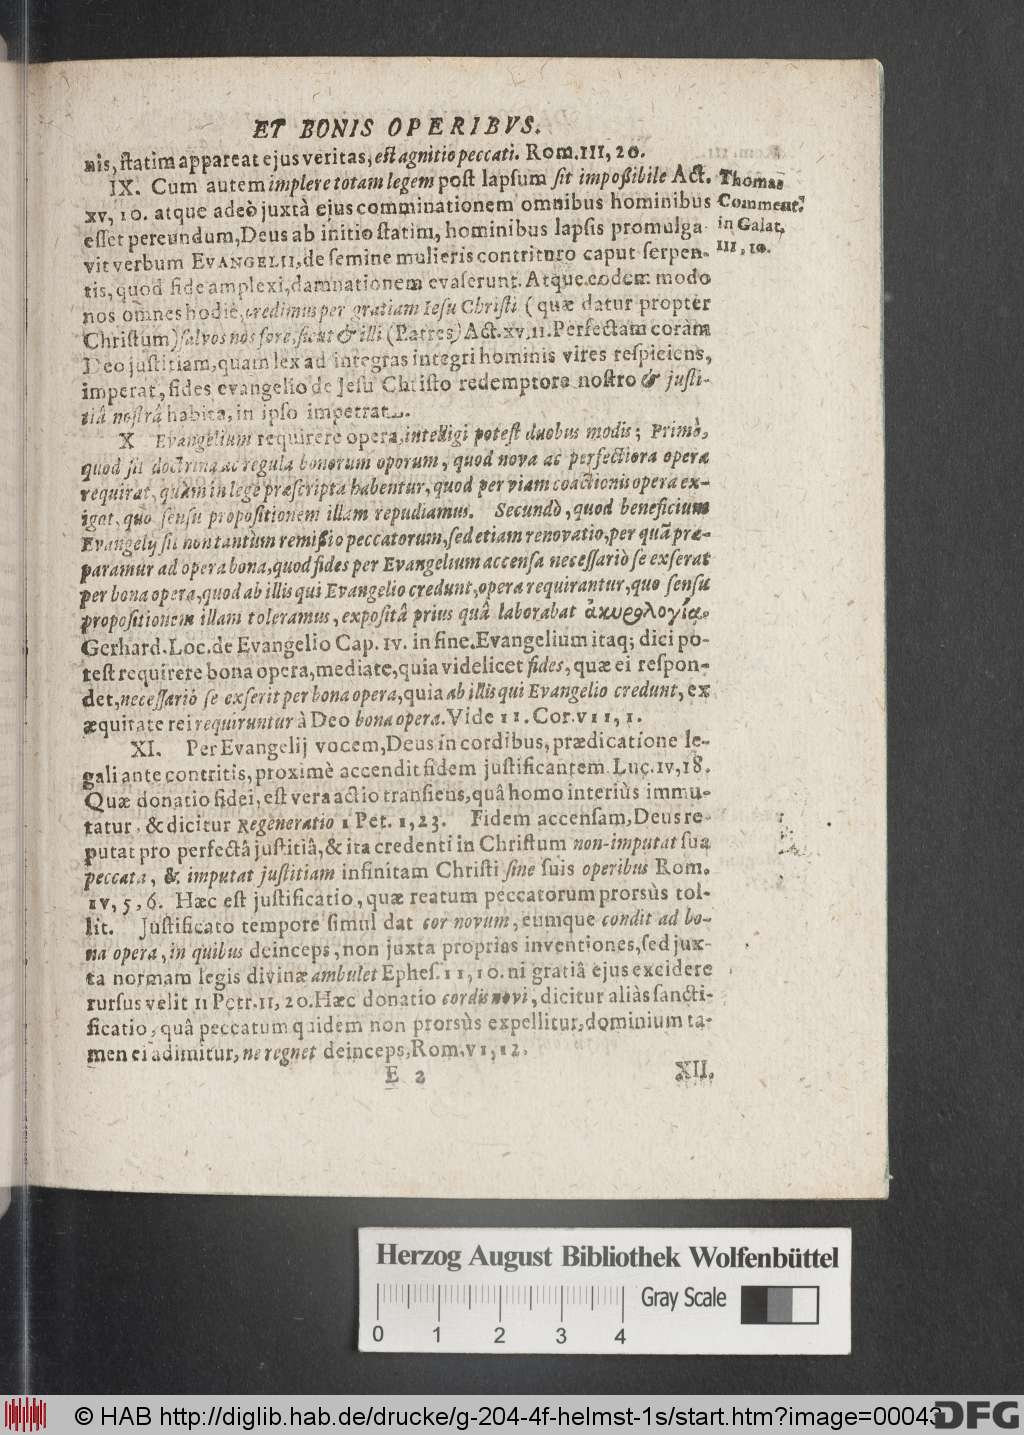 ET BONIS OPERIBVS.
nis, ſtatim appareat ejus veritas, eſt agnitio peccati. Rom. III, 20.
IX. Cum autem implere totam legem poſt lapſum ſit impoßibile Act.
xv, 10. atque adeò juxtà ejus comminationem omnibus hominibus
eſſet pereundum, Deus ab initio ſtatim, hominibus lapſis promulga
vit verbum EVANGELII, de ſemine mulieris contrituro caput ſerpen-
tis, quod fide amplexi, damnationem evaſerunt. Atque eodem modo
nos omnes hodiè, credimus per gratiam Ieſu Chriſti (quæ datur propter
Chriſtum) ſalvos nos fore, ſicut & illi (Patres) Act. xv, 11. Perfectam coràm
Deo juſtitiam, quam lex ad integras integri hominis vires reſpiciens,
imperat, fides evangelio de Jeſu Chriſto redemptore noſtro & juſti-
tiâ noſtrâ habita, in ipſo impetrat.
Thomas
Comment.
in Galat,
III, 10.
X Evangelium requirere opera, intelligi poteſt duobus modis; Primò,
quod ſit doctrina ac regula bonorum oporum, quod nova ac perfectiora opera
requirat, quàm in lege præſcripta habentur, quod per viam coactionis opera ex-
igat, quo ſenſu propoſitionem illam repudiamus. Secundò, quod beneficium
Evangelij ſit non tantùm remißio peccatorum, ſed etiam renovatio, per quã præ-
paramur ad opera bona, quod fides per Evangelium accenſa neceſſariò ſe exſerat
per bona opera, quod ab illis qui Evangelio credunt, opera requirantur, quo ſenſu
propoſitionem illam toleramus, expoſitâ prius quâ laborabat ἀκυρολογίᾳ.
Gerhard. Loc. de Evangelio Cap. IV. in fine. Evangelium itaq; dici po-
teſt requirere bona opera, mediate, quia videlicet fides, quæ ei reſpon-
det, neceſſariò ſe exſerit per bona opera, quia ab illis qui Evangelio credunt, ex
æquitate rei requiruntur à Deo bona opera. Vide II. Cor. VII, 1.
XI. Per Evangelij vocem, Deus in cordibus, prædicatione le-
gali ante contritis, proximè accendit fidem juſtificantem Luc. IV, 18.
Quæ donatio fidei, eſt vera actio tranſiens, quâ homo interiùs immu-
tatur, & dicitur Regeneratio 1 Pet. 1, 23. Fidem accenſam, Deus re-
putat pro perfectâ juſtitiâ, & ita credenti in Chriſtum non-imputat ſua
peccata, & imputat juſtitiam infinitam Chriſti ſine ſuis operibus Rom.
IV, 5, 6. Hæc eſt juſtificatio, quæ reatum peccatorum prorsùs tol-
lit. Juſtificato tempore ſimul dat cor novum, eumque condit ad bo-
na opera, in quibus deinceps, non juxta proprias inventiones, ſed jux-
ta normam legis divinæ ambulet Epheſ. II, 10. ni gratiâ ejus excidere
rurſus velit II Petr. II, 20. Hæc donatio cordis novi, dicitur aliàs ſancti-
ficatio, quâ peccatum quidem non prorsùs expellitur, dominium ta-
men ei adimitur, ne regnet deinceps, Rom. VI, 12.
E 2
XII.
Herzog August Bibliothek Wolfenbüttel
Gray Scale
0 1 2 3 4
© HAB http://diglib.hab.de/drucke/g-204-4f-helmst-1s/start.htm?image=00043
DFG